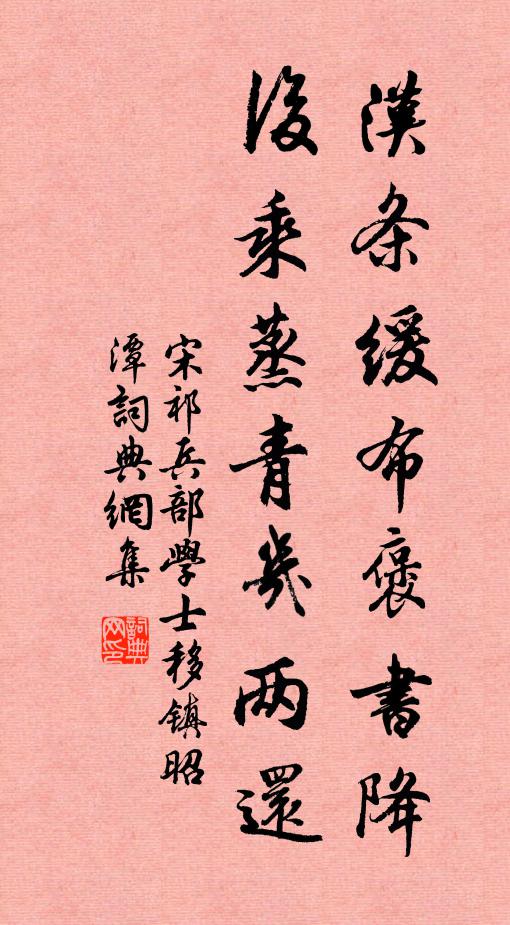 漢条緩布褒書降
後乘蒸青幾两還
宋祁兵部學士移鎮昭
潭詞典網集
詞典网印